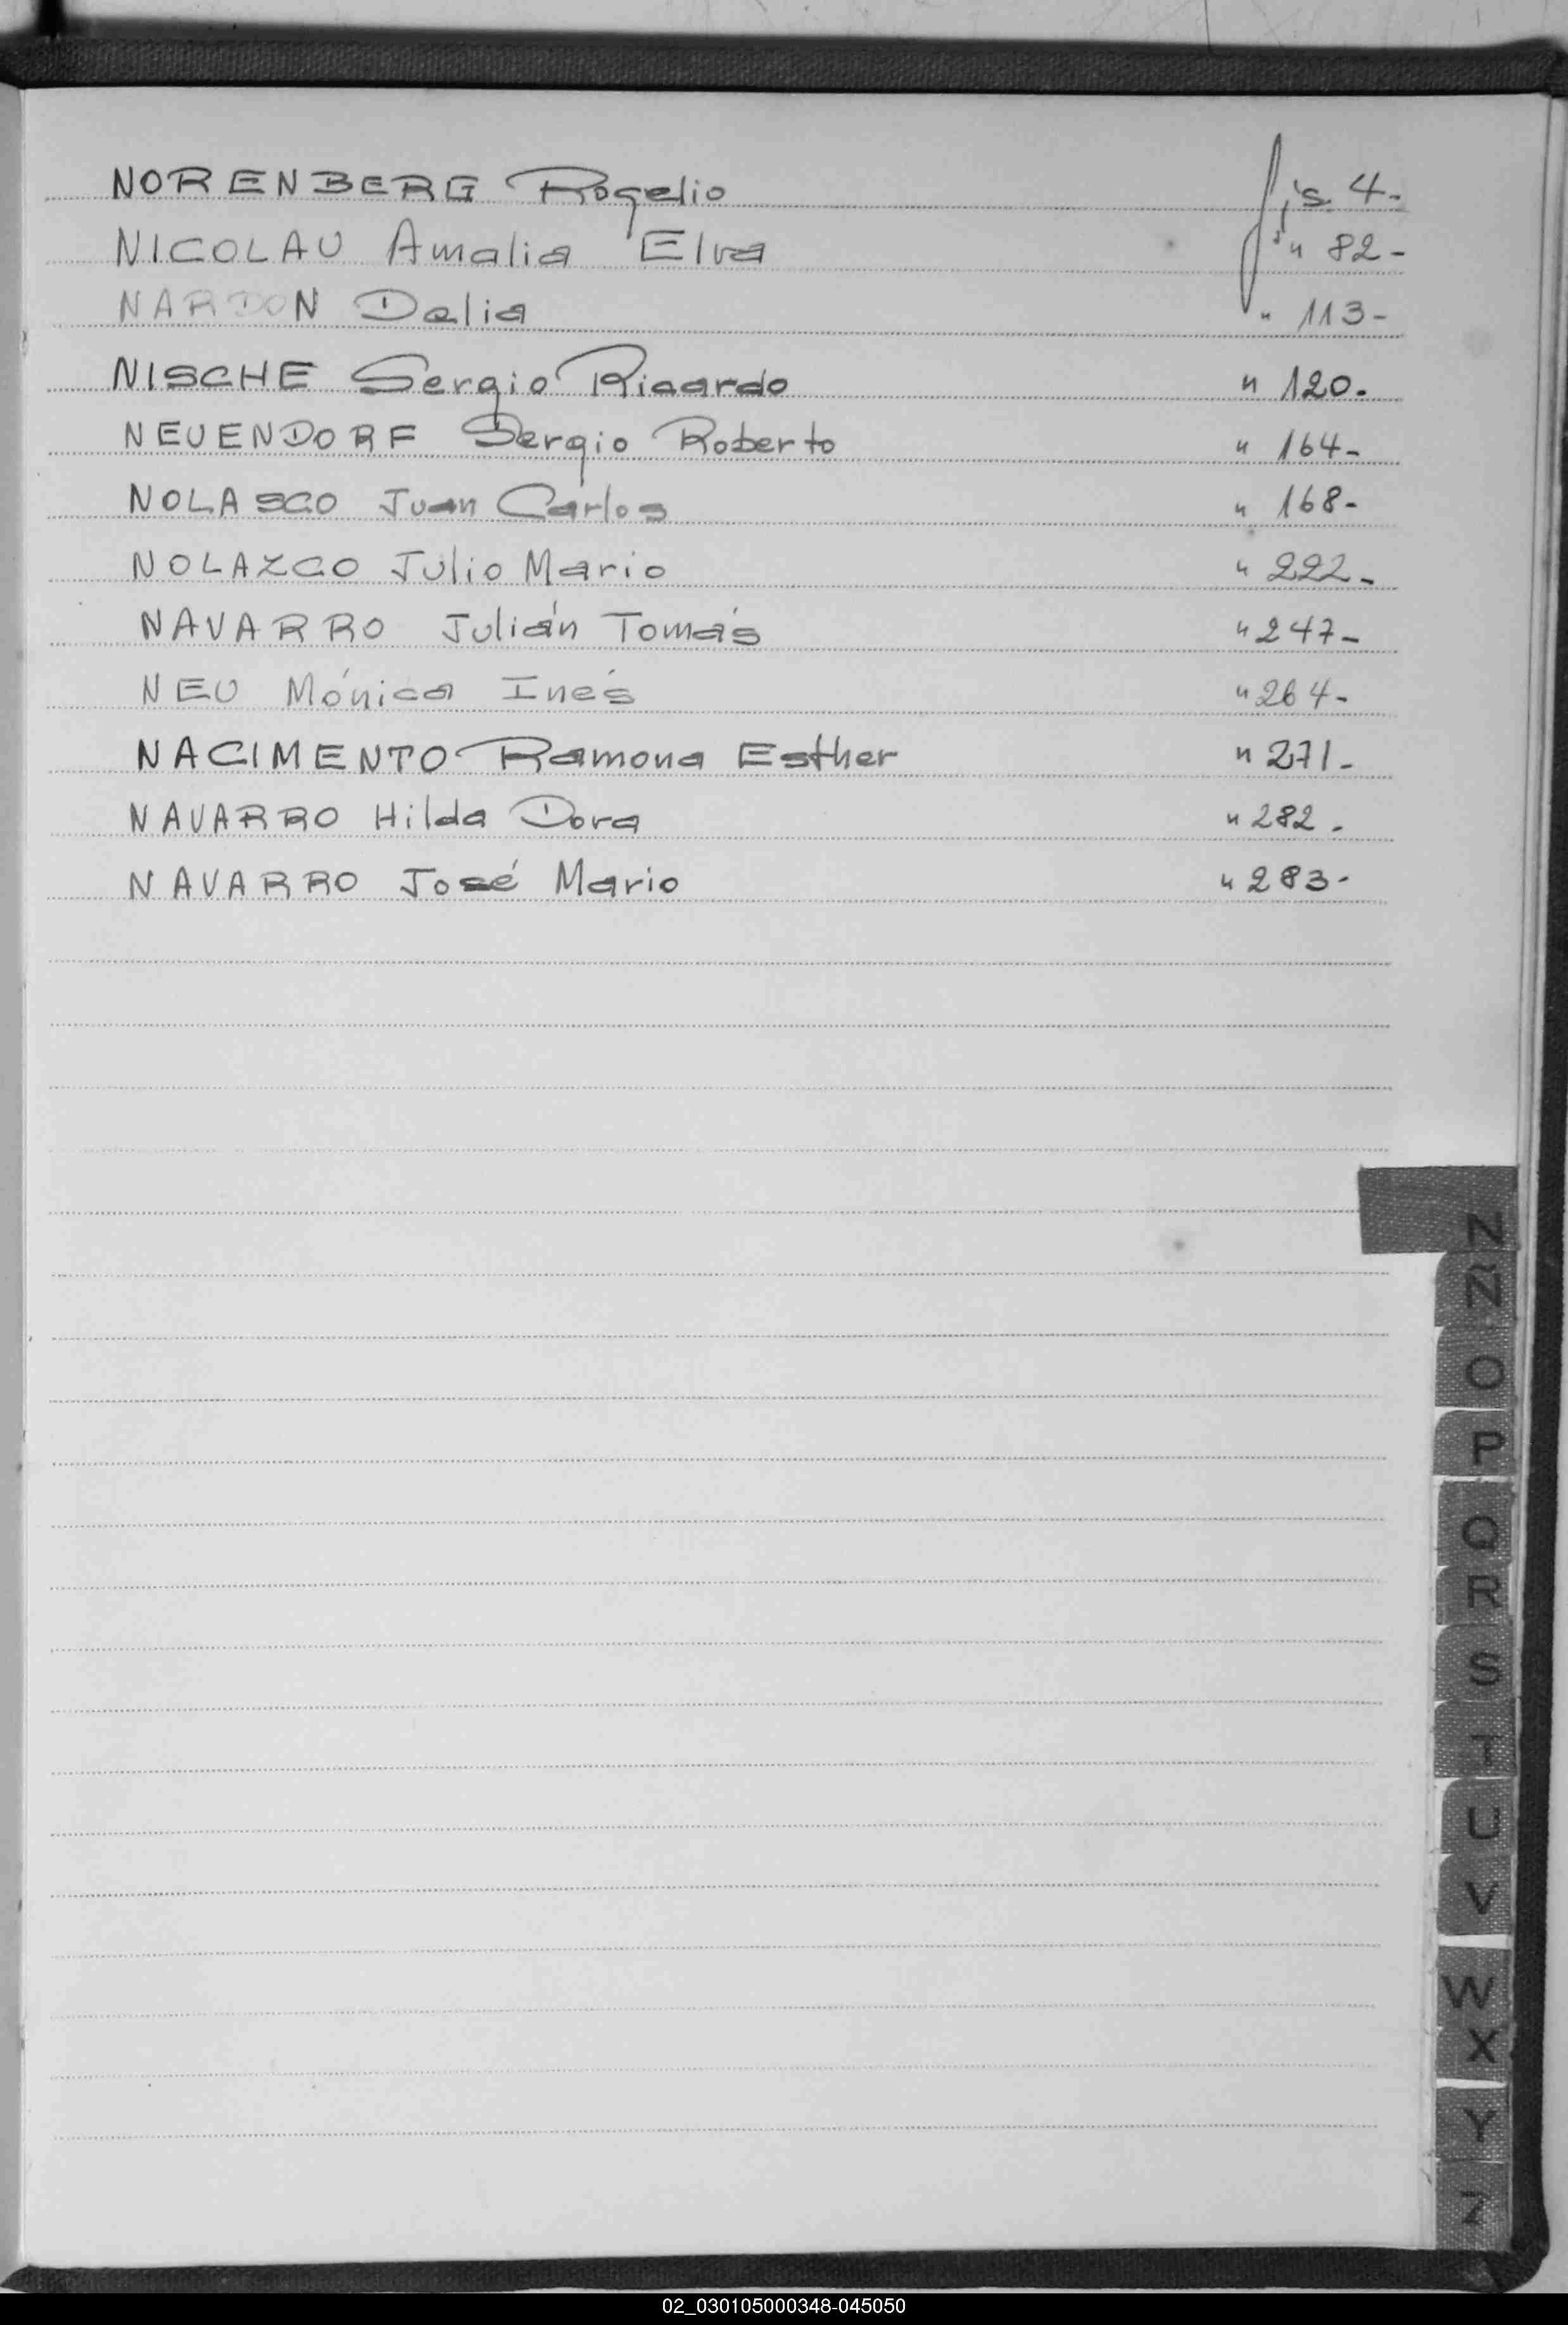 NORENBERG Rogelio fjs. 4-
NICOLAU Amalia Elva " 82-
NARDON Delia " 113-
NISCHE Sergio Ricardo " 120.
NEUENDORF Sergio Roberto " 164-
NOLASCO Juan Carlos " 168-
NOLAZCO Julio Mario " 222-
NAVARRO Julián Tomás " 247-
NEU Mónica Inés " 264-
NACIMENTO Ramona Esther " 271-
NAVARRO Hilda Dora " 282.
NAVARRO José Mario " 283-
N
Ñ
O
P
Q
R
S
T
U
V
W
X
Y
Z
02_030105000348-045050